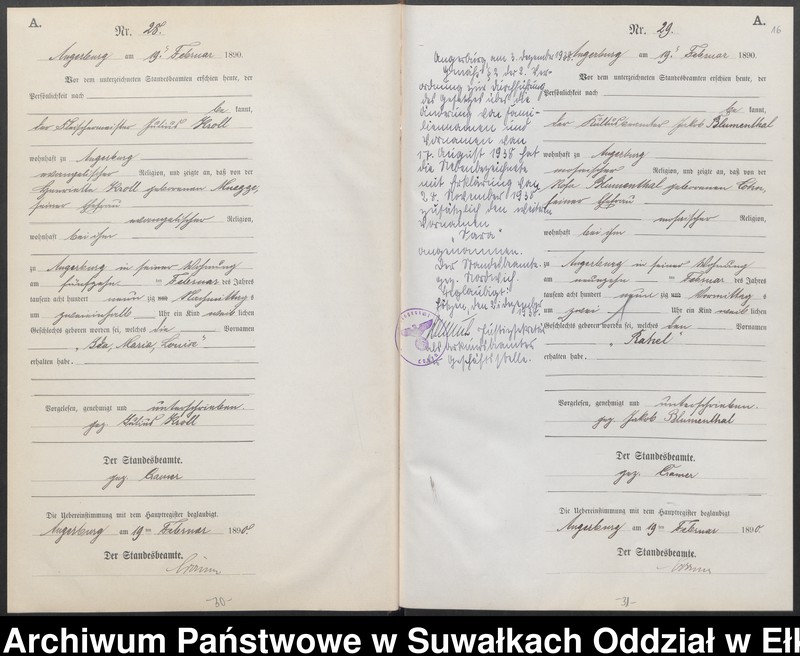 A.
Nr. 28.
Angerburg am 19ᵗ Februar 1890.
Vor dem unterzeichneten Standesbeamten erschien heute, der
Persönlichkeit nach
be kannt,
der Julius Kroll
wohnhaft zu Angerburg
evangelischer Religion, und zeigte an, daß von der
Henriette Kroll geborenen
seiner Ehefrau
evangelischer Religion,
wohnhaft bei ihm
zu Angerburg in seiner Wohnung
am fünfzehn ten Februar des Jahres
tausend acht hundert neun zig Nachmittags
um zweieinhalb Uhr ein Kind weib lichen
Geschlechts geboren worden sei, welches die Vornamen
„Ida, Maria, Louise“
erhalten habe.
Vorgelesen, genehmigt und unterschrieben.
gez. Julius Kroll
Der Standesbeamte.
gez. Cramer
Die Uebereinstimmung mit dem Hauptregister beglaubigt.
Angerburg am 19 ten Februar 1890.
Der Standesbeamte.
Cramer
-30-
A.
16
Nr. 29.
Angerburg am 19ᵗ Februar 1890.
Vor dem unterzeichneten Standesbeamten erschien heute, der
Persönlichkeit nach
be kannt,
der Kultusbeamte Jakob Blumenthal
wohnhaft zu Angerburg
mosaischer Religion, und zeigte an, daß von der
Rosa Blumenthal geborenen Cohn,
seiner Ehefrau
mosaischer Religion,
wohnhaft bei ihm
zu Angerburg in seiner Wohnung
am neunzehn ten Februar des Jahres
tausend acht hundert neun zig Vormittag s
um zwei Uhr ein Kind weib lichen
Geschlechts geboren worden sei, welches den Vornamen
„Rahel“
erhalten habe.
Vorgelesen, genehmigt und unterschrieben.
gez. Jakob Blumenthal
Der Standesbeamte.
gez. Cramer
Die Uebereinstimmung mit dem Hauptregister beglaubigt
Angerburg am 19 ten Februar 1890.
Der Standesbeamte.
Cramer
-31-
Angerburg, am 3. Dezember 1938.
Gemäß § 2 der 2. Ver-
ordnung zur Durchführung
des Gesetzes über die
Änderung von Fami-
liennamen und
Vornamen vom
17. August 1938 hat
die Nebenbezeichnete
mit Erklärung vom
28. November 1938
zusätzlich den weiteren
Vornamen
„Sara“
angenommen.
Der Standesbeamte.
gez.
Beglaubigt:
Lötzen, den Dezember
1938.
Justizsekretär
als Urkundsbeamter
der Geschäftsstelle.
Archiwum Państwowe w Suwałkach Oddział w Ełk